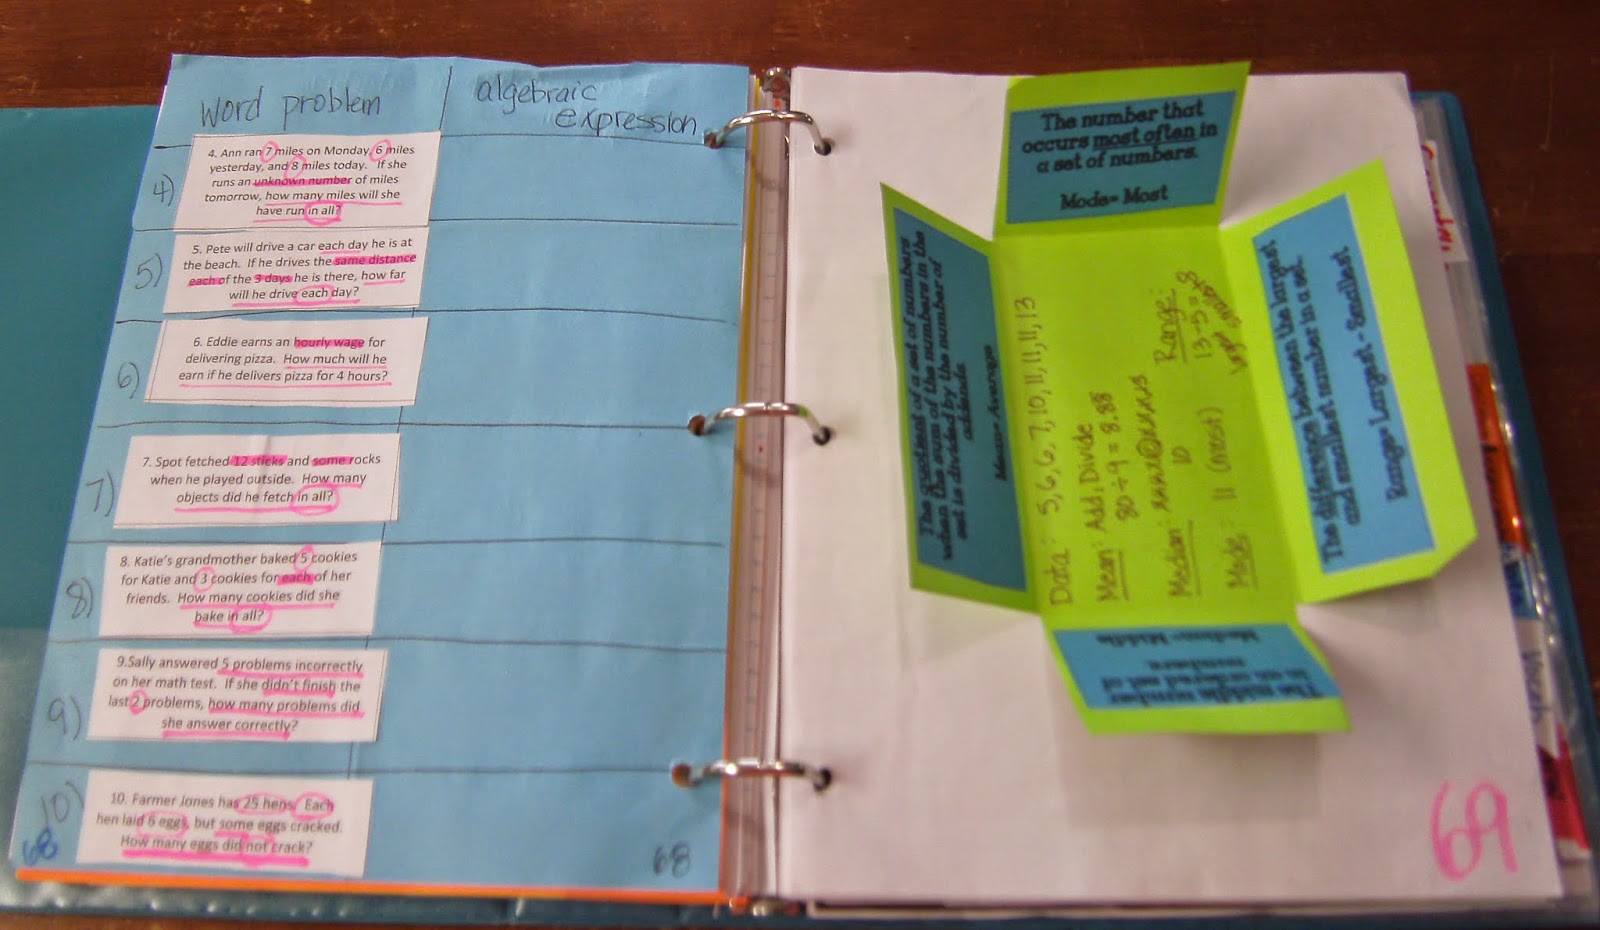 word problem
algebraic
expression
4)
4. Ann ran 7 miles on Monday, 6 miles
yesterday, and 8 miles today. If she
runs an unknown number of miles
tomorrow, how many miles will she
have run in all?
5)
5. Pete will drive a car each day he is at
the beach. If he drives the same distance
each of the 3 days he is there, how far
will he drive each day?
6)
6. Eddie earns an hourly wage for
delivering pizza. How much will he
earn if he delivers pizza for 4 hours?
7)
7. Spot fetched 12 sticks and some rocks
when he played outside. How many
objects did he fetch in all?
8)
8. Katie's grandmother baked 5 cookies
for Katie and 3 cookies for each of her
friends. How many cookies did she
bake in all?
9)
9.Sally answered 5 problems incorrectly
on her math test. If she didn't finish the
last 2 problems, how many problems did
she answer correctly?
10)
10. Farmer Jones has 25 hens. Each
hen laid 6 eggs, but some eggs cracked.
How many eggs did not crack?
68
68
The number that
occurs most often in
a set of numbers.
Mode= Most
The quotient of a set of numbers
when the sum of the numbers in the
set is divided by the number of
addends.
Mean= Average
Data: 5, 6, 6, 7, 10, 11, 11, 11, 13
Mean: Add, Divide
80 ÷ 9 = 8.88
Median:
10
Mode: 11 (most)
Range:
13-5=8
The difference between the largest
and smallest number in a set.
Range= Largest - Smallest
The middle number
in an ordered set of
numbers.
Median= Middle
69